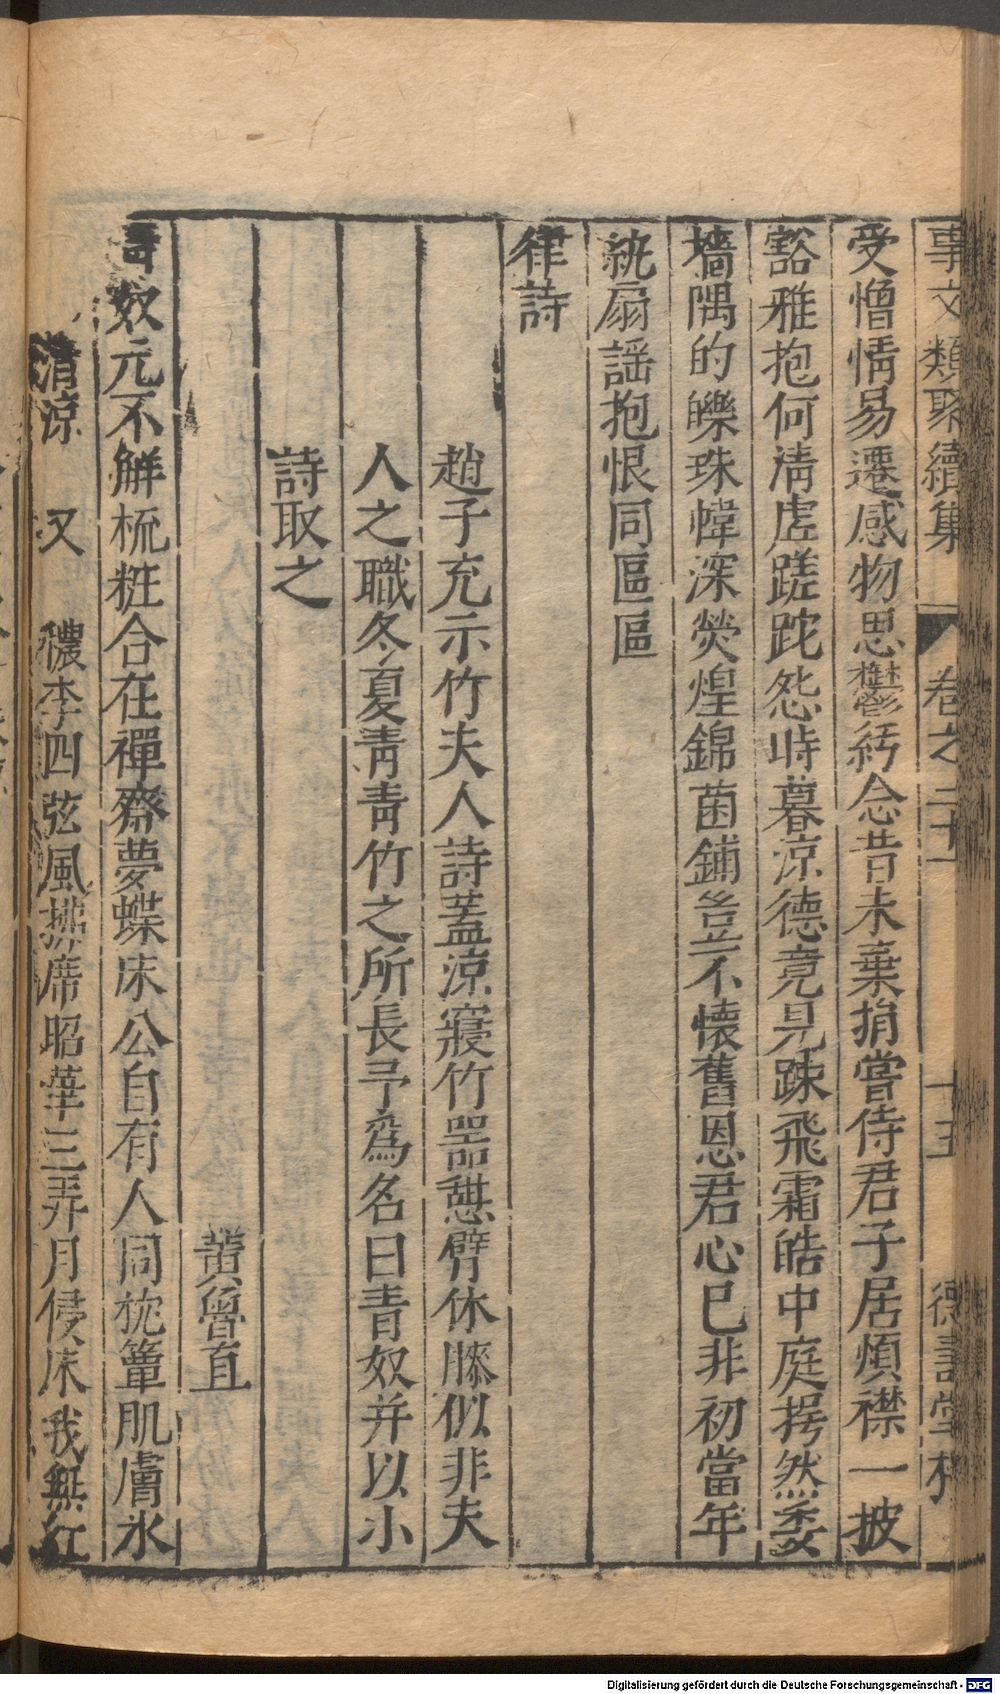 事文類聚續集 卷之二十一 十五 德壽堂梓
受憎情易遷感物思鬱紆念昔未棄捐嘗侍君子居煩襟一披
豁雅抱何淸虗蹉跎怨時暮涼德竟見踈飛霜皓中庭揢然委
墻隅的皪珠幃深熒煌錦茵鋪豈不懷舊恩君心已非初當年
紈扇謡抱恨同區區
律詩
趙子充示竹夫人詩蓋涼寢竹器憇臂休膝似非夫
人之職冬夏靑靑竹之所長予爲名曰青奴并以小
詩取之
黄魯直
青奴元不解梳粧合在禪齋夢蝶床公自有人同枕簟肌膚氷
清涼 又 穠李四弦風拂席昭華三弄月侵床我無紅
Digitalisierung gefördert durch die Deutsche Forschungsgemeinschaft - DFG